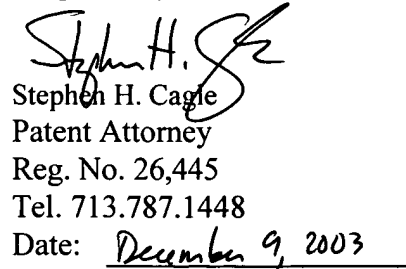 Stephen H. Cagle
Stephen H. Cagle
Patent Attorney
Reg. No. 26,445
Tel. 713.787.1448
Date: December 9, 2003